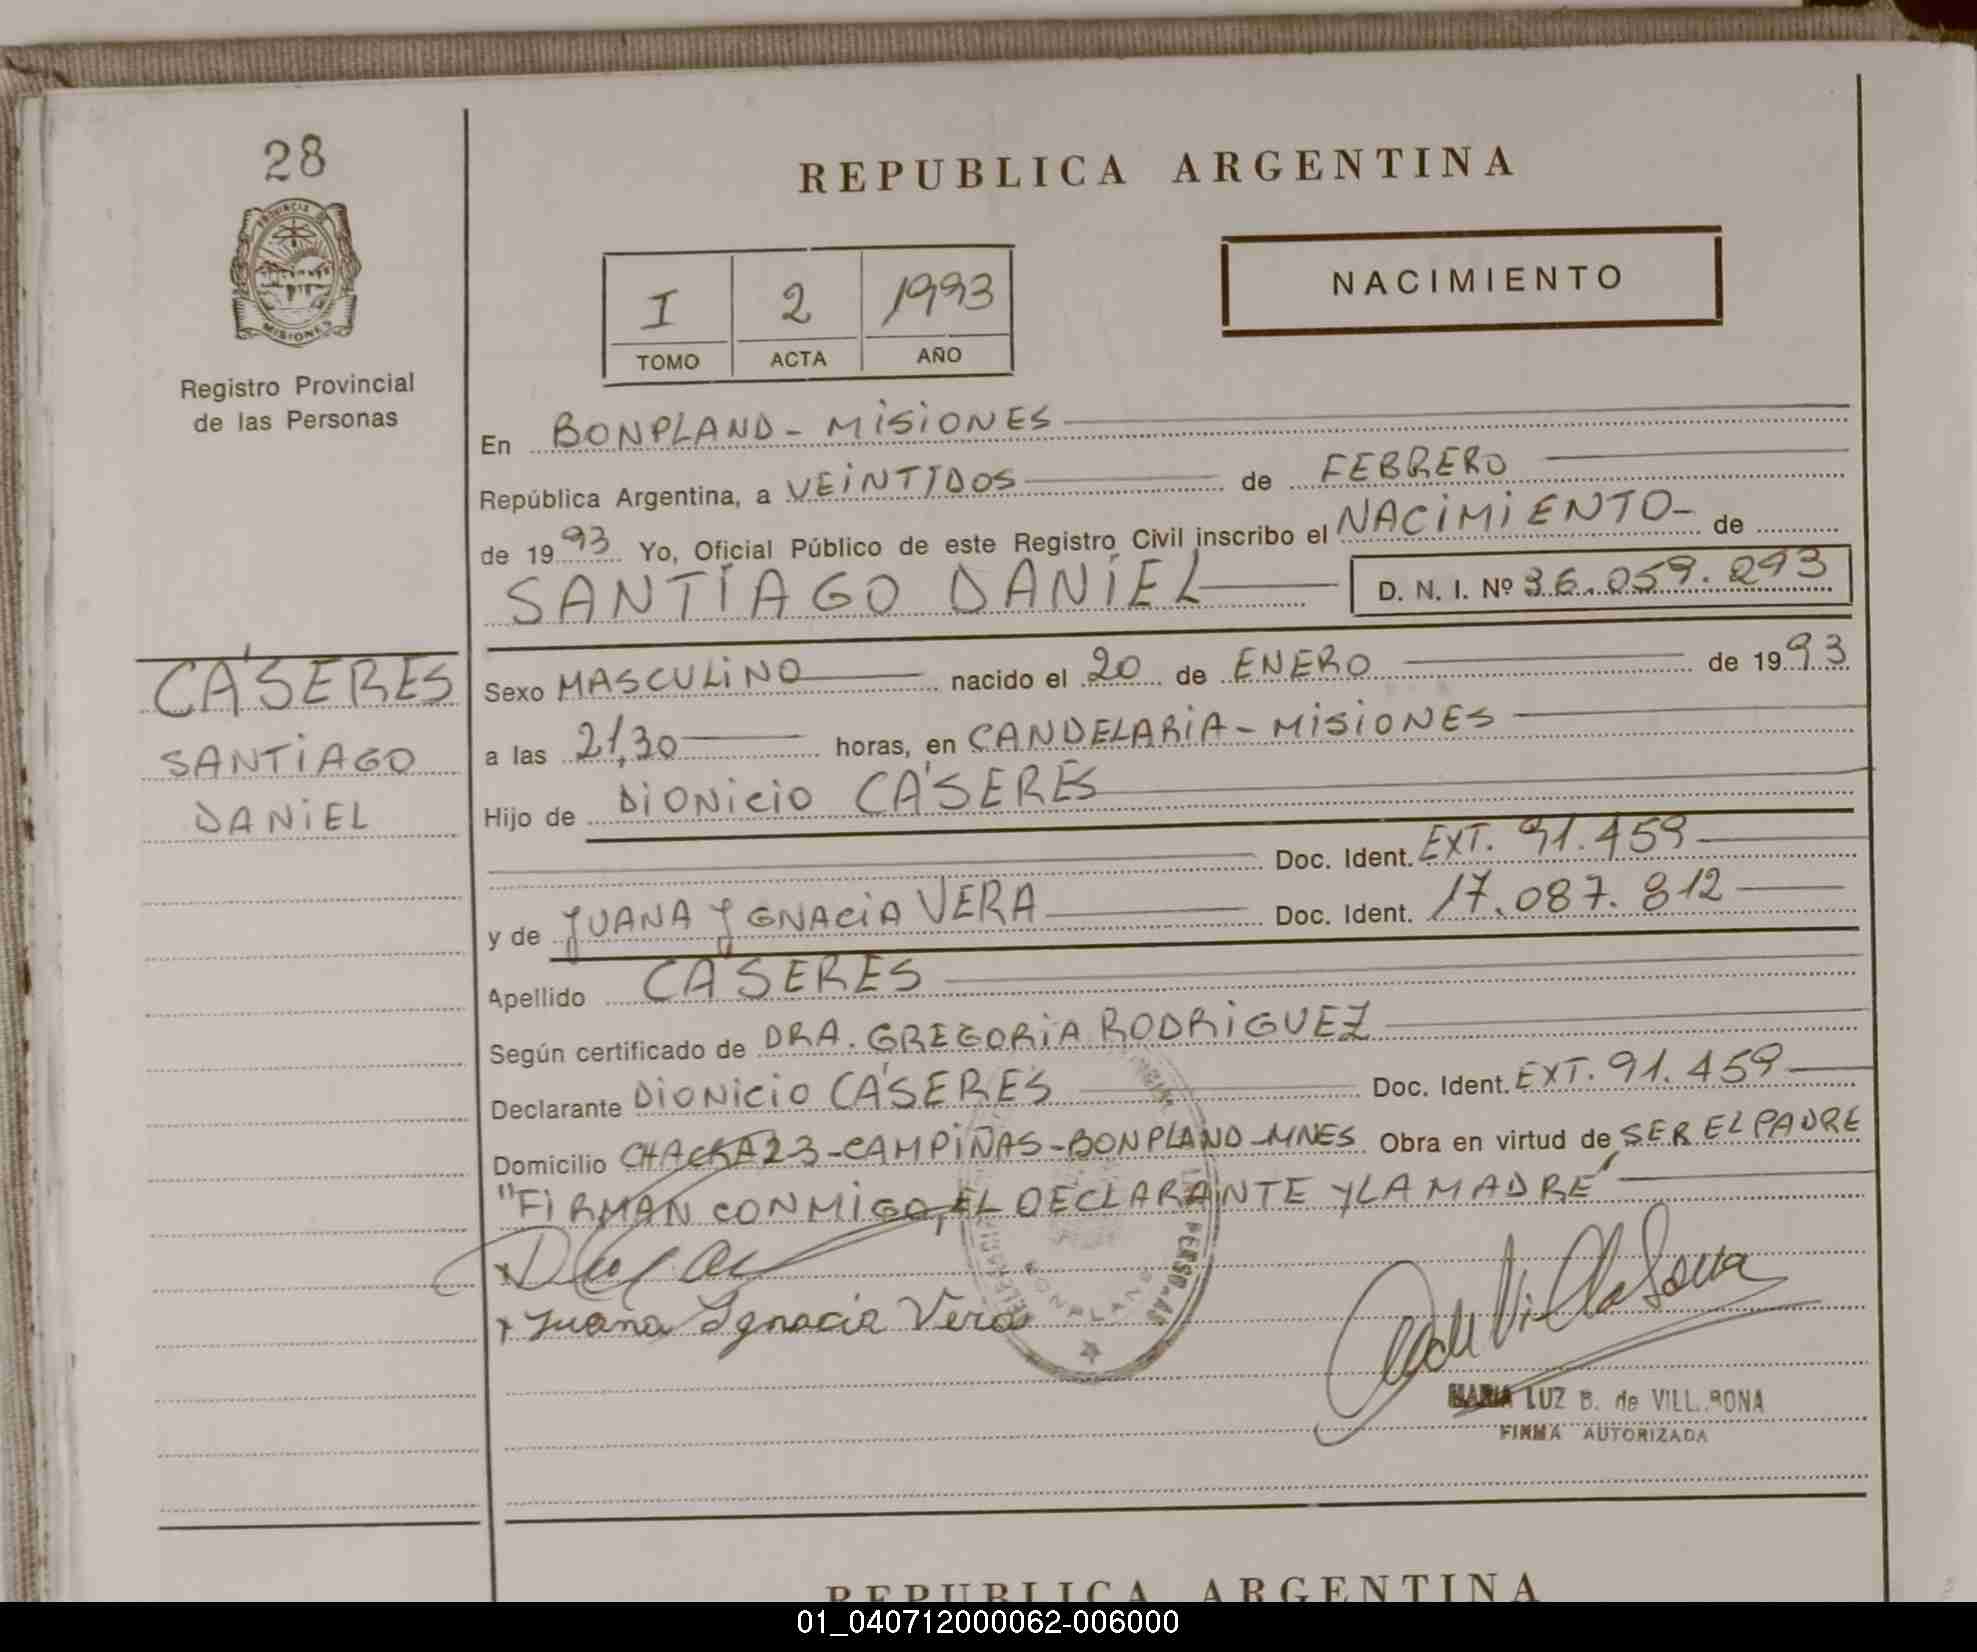 28
PROVINCIA DE
MISIONES
Registro Provincial
de las Personas
REPUBLICA ARGENTINA
I 2 1993
TOMO ACTA AÑO
NACIMIENTO
En BONPLAND - MISIONES
República Argentina, a VEINTIDOS de FEBRERO
de 1993 Yo, Oficial Público de este Registro Civil inscribo el NACIMIENTO- de
SANTIAGO DANIEL D. N. I. Nº 36.059.293
CÁSERES
SANTIAGO
DANIEL
Sexo MASCULINO nacido el 20 de ENERO de 1993
a las 21,30 horas, en CANDELARIA - MISIONES
Hijo de DIONICIO CÁSERES
Doc. Ident. EXT. 91.459
y de JUANA YGNACIA VERA Doc. Ident. 17.087.812
Apellido CASERES
Según certificado de DRA. GREGORIA RODRIGUEZ
Declarante DIONICIO CÁSERES Doc. Ident. EXT. 91.459
Domicilio CHACRA 23-CAMPIÑAS-BONPLAND-MNES Obra en virtud de SER EL PADRE
"FIRMAN CONMIGO, EL DECLARANTE Y LA MADRE"
x Juana Ignacia Vera
BONPLAND
MARIA LUZ B. de VILL.RONA
FIRMA AUTORIZADA
REPUBLICA ARGENTINA
01_040712000062-006000